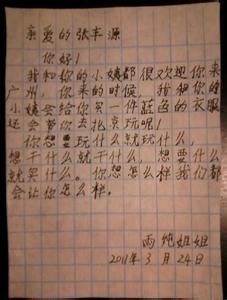 亲爱的张丰源
你好!
我和你的小姨都很欢迎你来
广州,你来的时候,我和你的
小姨会给你买一件蓝色的衣服
还会带你去北京玩呢!
你想要玩什么就玩什么,
想干什么就干什么,想要什么
就买什么。你想怎么样我们都
会让你怎么样。
雨纯姐姐
2011年3月24日